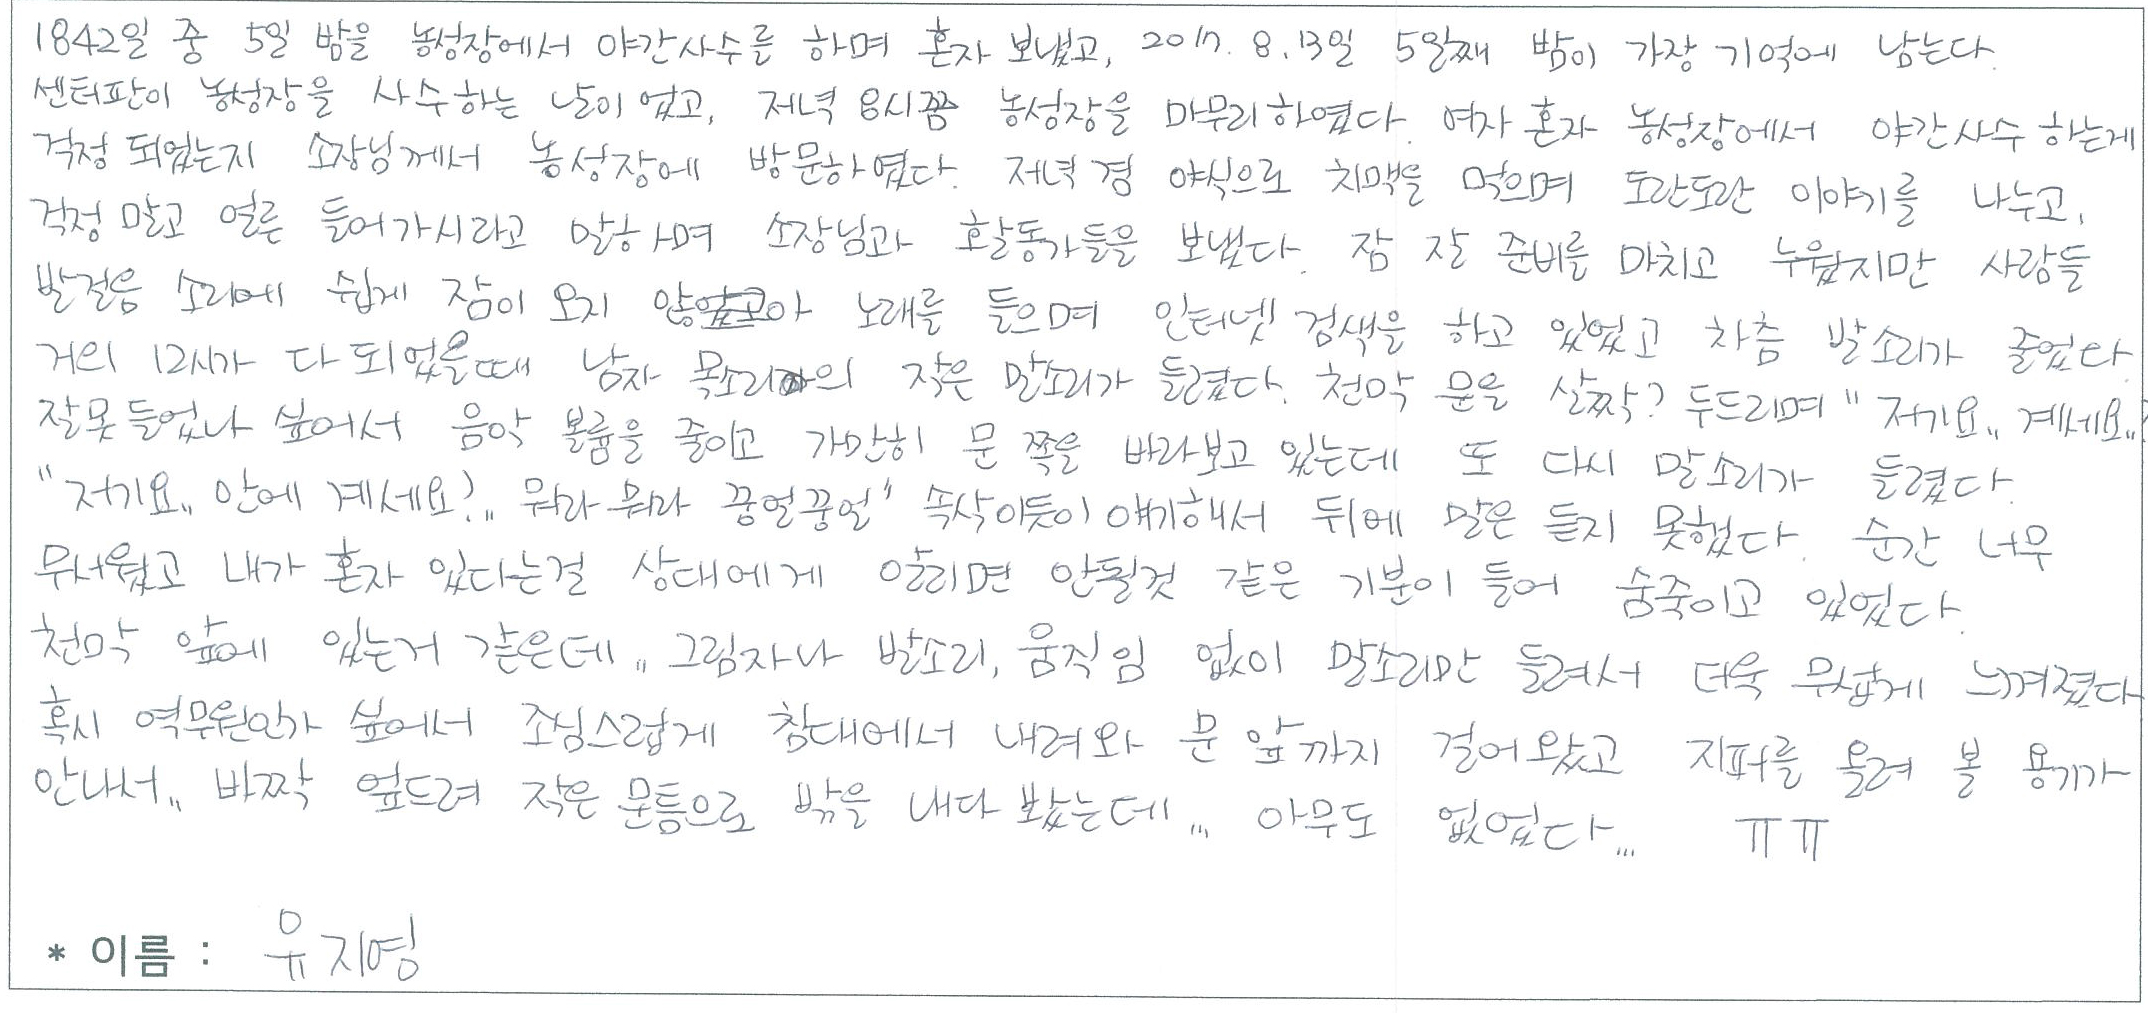 1842일 중 5일 밤을 농성장에서 야간사수를 하며 혼자 보냈고, 2017. 8. 13일 5일째 밤이 가장 기억에 남는다.
센터판이 농성장을 사수하는 날이었고, 저녁 8시쯤 농성장을 마무리하였다. 여자 혼자 농성장에서 야간사수 하는게
걱정 되었는지 소장님께서 농성장에 방문하였다. 저녁 겸 야식으로 치맥을 먹으며 도란도란 이야기를 나누고,
걱정 말고 얼른 들어가시라고 말하며 소장님과 활동가들을 보냈다. 잠 잘 준비를 마치고 누웠지만 사람들
발걸음 소리에 쉽게 잠이 오지 않아 노래를 들으며 인터넷 검색을 하고 있었고 차츰 발소리가 줄었다.
거의 12시가 다 되었을때 남자 목소리의 작은 말소리가 들렸다. 천막 문을 살짝? 두드리며 "저기요.. 계세요.."
잘못 들었나 싶어서 음악 볼륨을 줄이고 가만히 문 쪽을 바라보고 있는데 또 다시 말소리가 들렸다.
"저기요.. 안에 계세요?.. 뭐라 뭐라 꿍얼꿍얼" 속삭이듯이 얘기해서 뒤에 말은 듣지 못했다. 순간 너무
무서웠고 내가 혼자 있다는걸 상대에게 알리면 안될것 같은 기분이 들어 숨죽이고 있었다.
천막 앞에 있는거 같은데.. 그림자나 발소리, 움직임 없이 말소리만 들려서 더욱 무섭게 느껴졌다
혹시 역무원인가 싶어서 조심스럽게 침대에서 내려와 문 앞까지 걸어왔고 지퍼를 올려 볼 용기가
안나서.. 바짝 엎드려 작은 문틈으로 밖을 내다 봤는데... 아무도 없었다... ㅠㅠ
* 이름 : 유지영